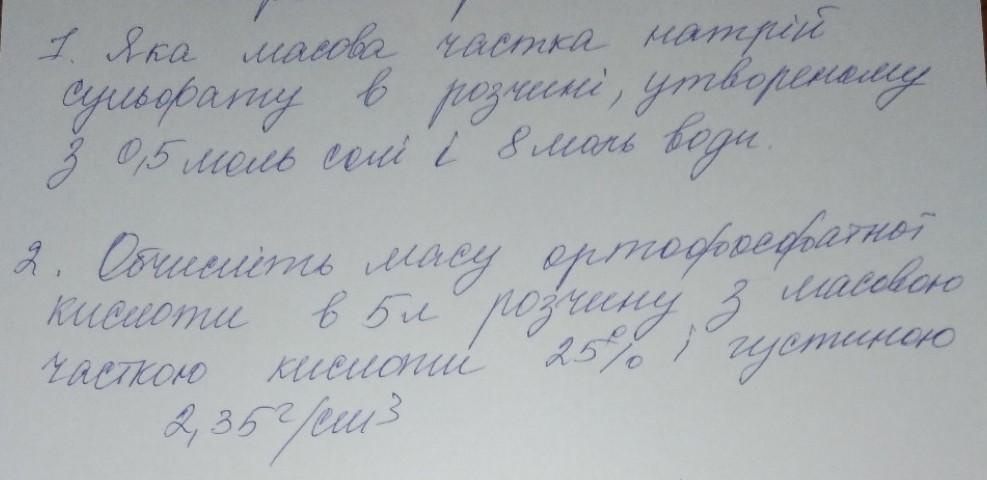 1. Яка масова частка натрій
сульфату в розчині, утвореному
з 0,5 моль солі і 8 моль води.
2. Обчисліть масу ортофосфатної
кислоти в 5 л розчину з масовою
часткою кислоти 25% і густиною
2,35 г/см3